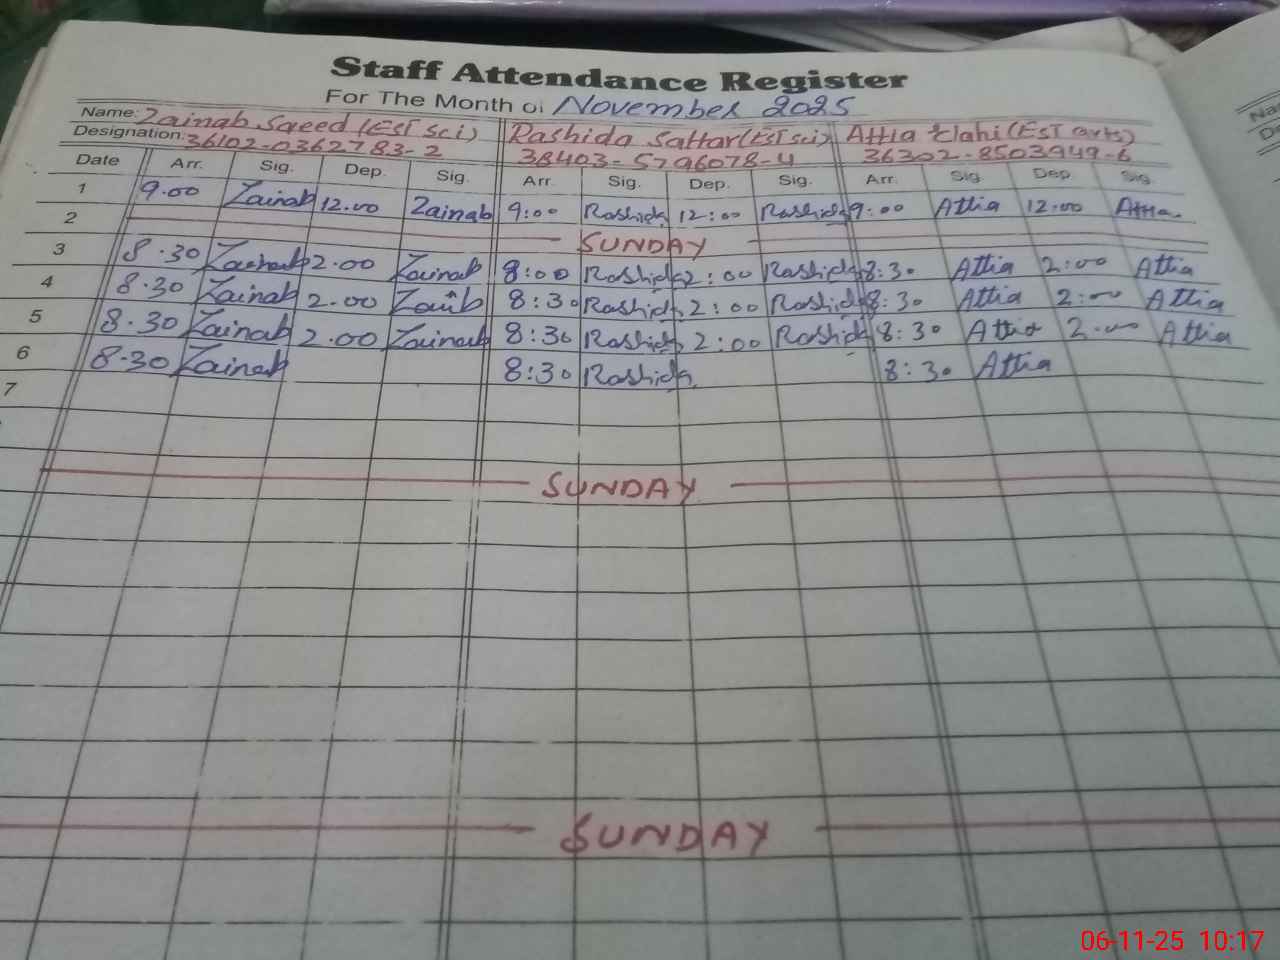 Staff Attendance Register
For The Month of November 2025
Name: Zainab Saeed (EST Sci) Rashida Sattar (EST sci) Attia Elahi (EST arts)
Designation: 36102-0362783-2 38403-5796078-4 36302-8503949-6
Date Arr. Sig. Dep. Sig. Arr. Sig. Dep. Sig. Arr. Sig. Dep. Sig.
1 9.00 Zainab 12.00 Zainab 9:00 Rashida 12:00 Rashida 9:00 Attia 12:00 Attia
2 SUNDAY
3 8.30 Zainab 2.00 Zainab 8:00 Rashida 2:00 Rashida 8:30 Attia 2:00 Attia
4 8.30 Zainab 2.00 Zainab 8:30 Rashida 2:00 Rashida 8:30 Attia 2:00 Attia
5 8.30 Zainab 2.00 Zainab 8:30 Rashida 2:00 Rashida 8:30 Attia 2:00 Attia
6 8.30 Zainab 8:30 Rashida 8:30 Attia
7
SUNDAY
SUNDAY
06-11-25 10:17